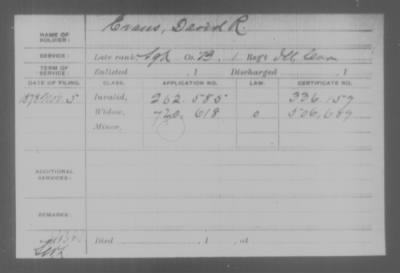 Evans, David R.
NAME OF SOLDIER:
SERVICE: Late rank Sgt Co. B, 1 Reg't Ill. Cav.
TERM OF SERVICE: Enlisted , 1 Discharged , 1
DATE OF FILING. CLASS. APPLICATION NO. LAW. CERTIFICATE NO.
1878 Nov. 5 Invalid, 262.585 336.157
Widow, 618 506.689
Minor,
ADDITIONAL SERVICES:
REMARKS:
Died , 1 , at